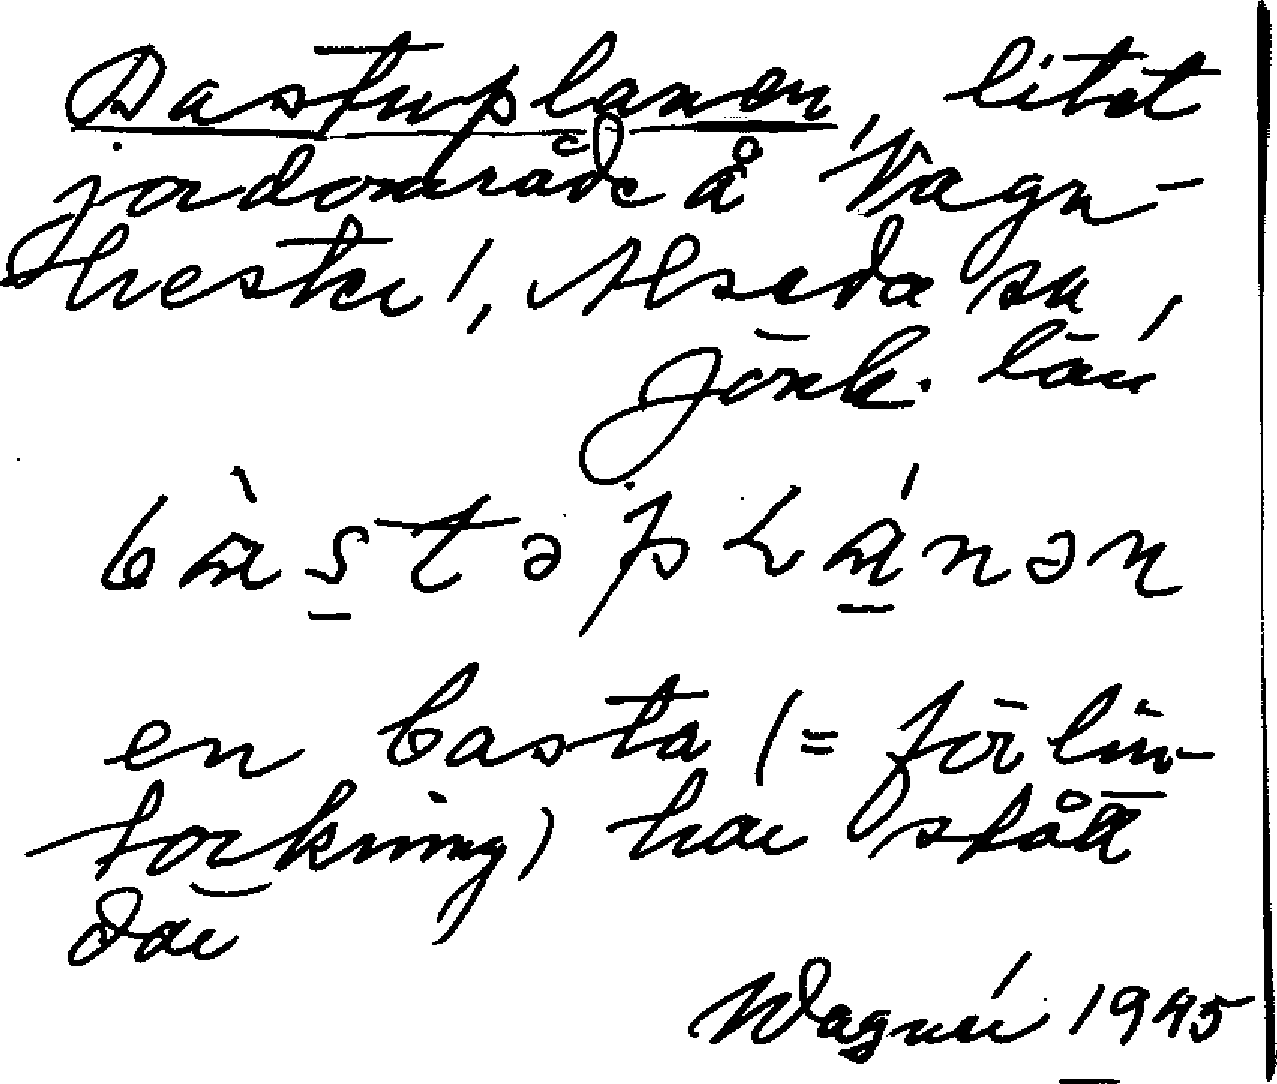 Bastuplanen, litet
jordområde å Vagn-
hester, Alseda sn,
Jönk. län
bàstəplánən
en basta (= för lin-
torkning) har stått
där
Wagnér 1945